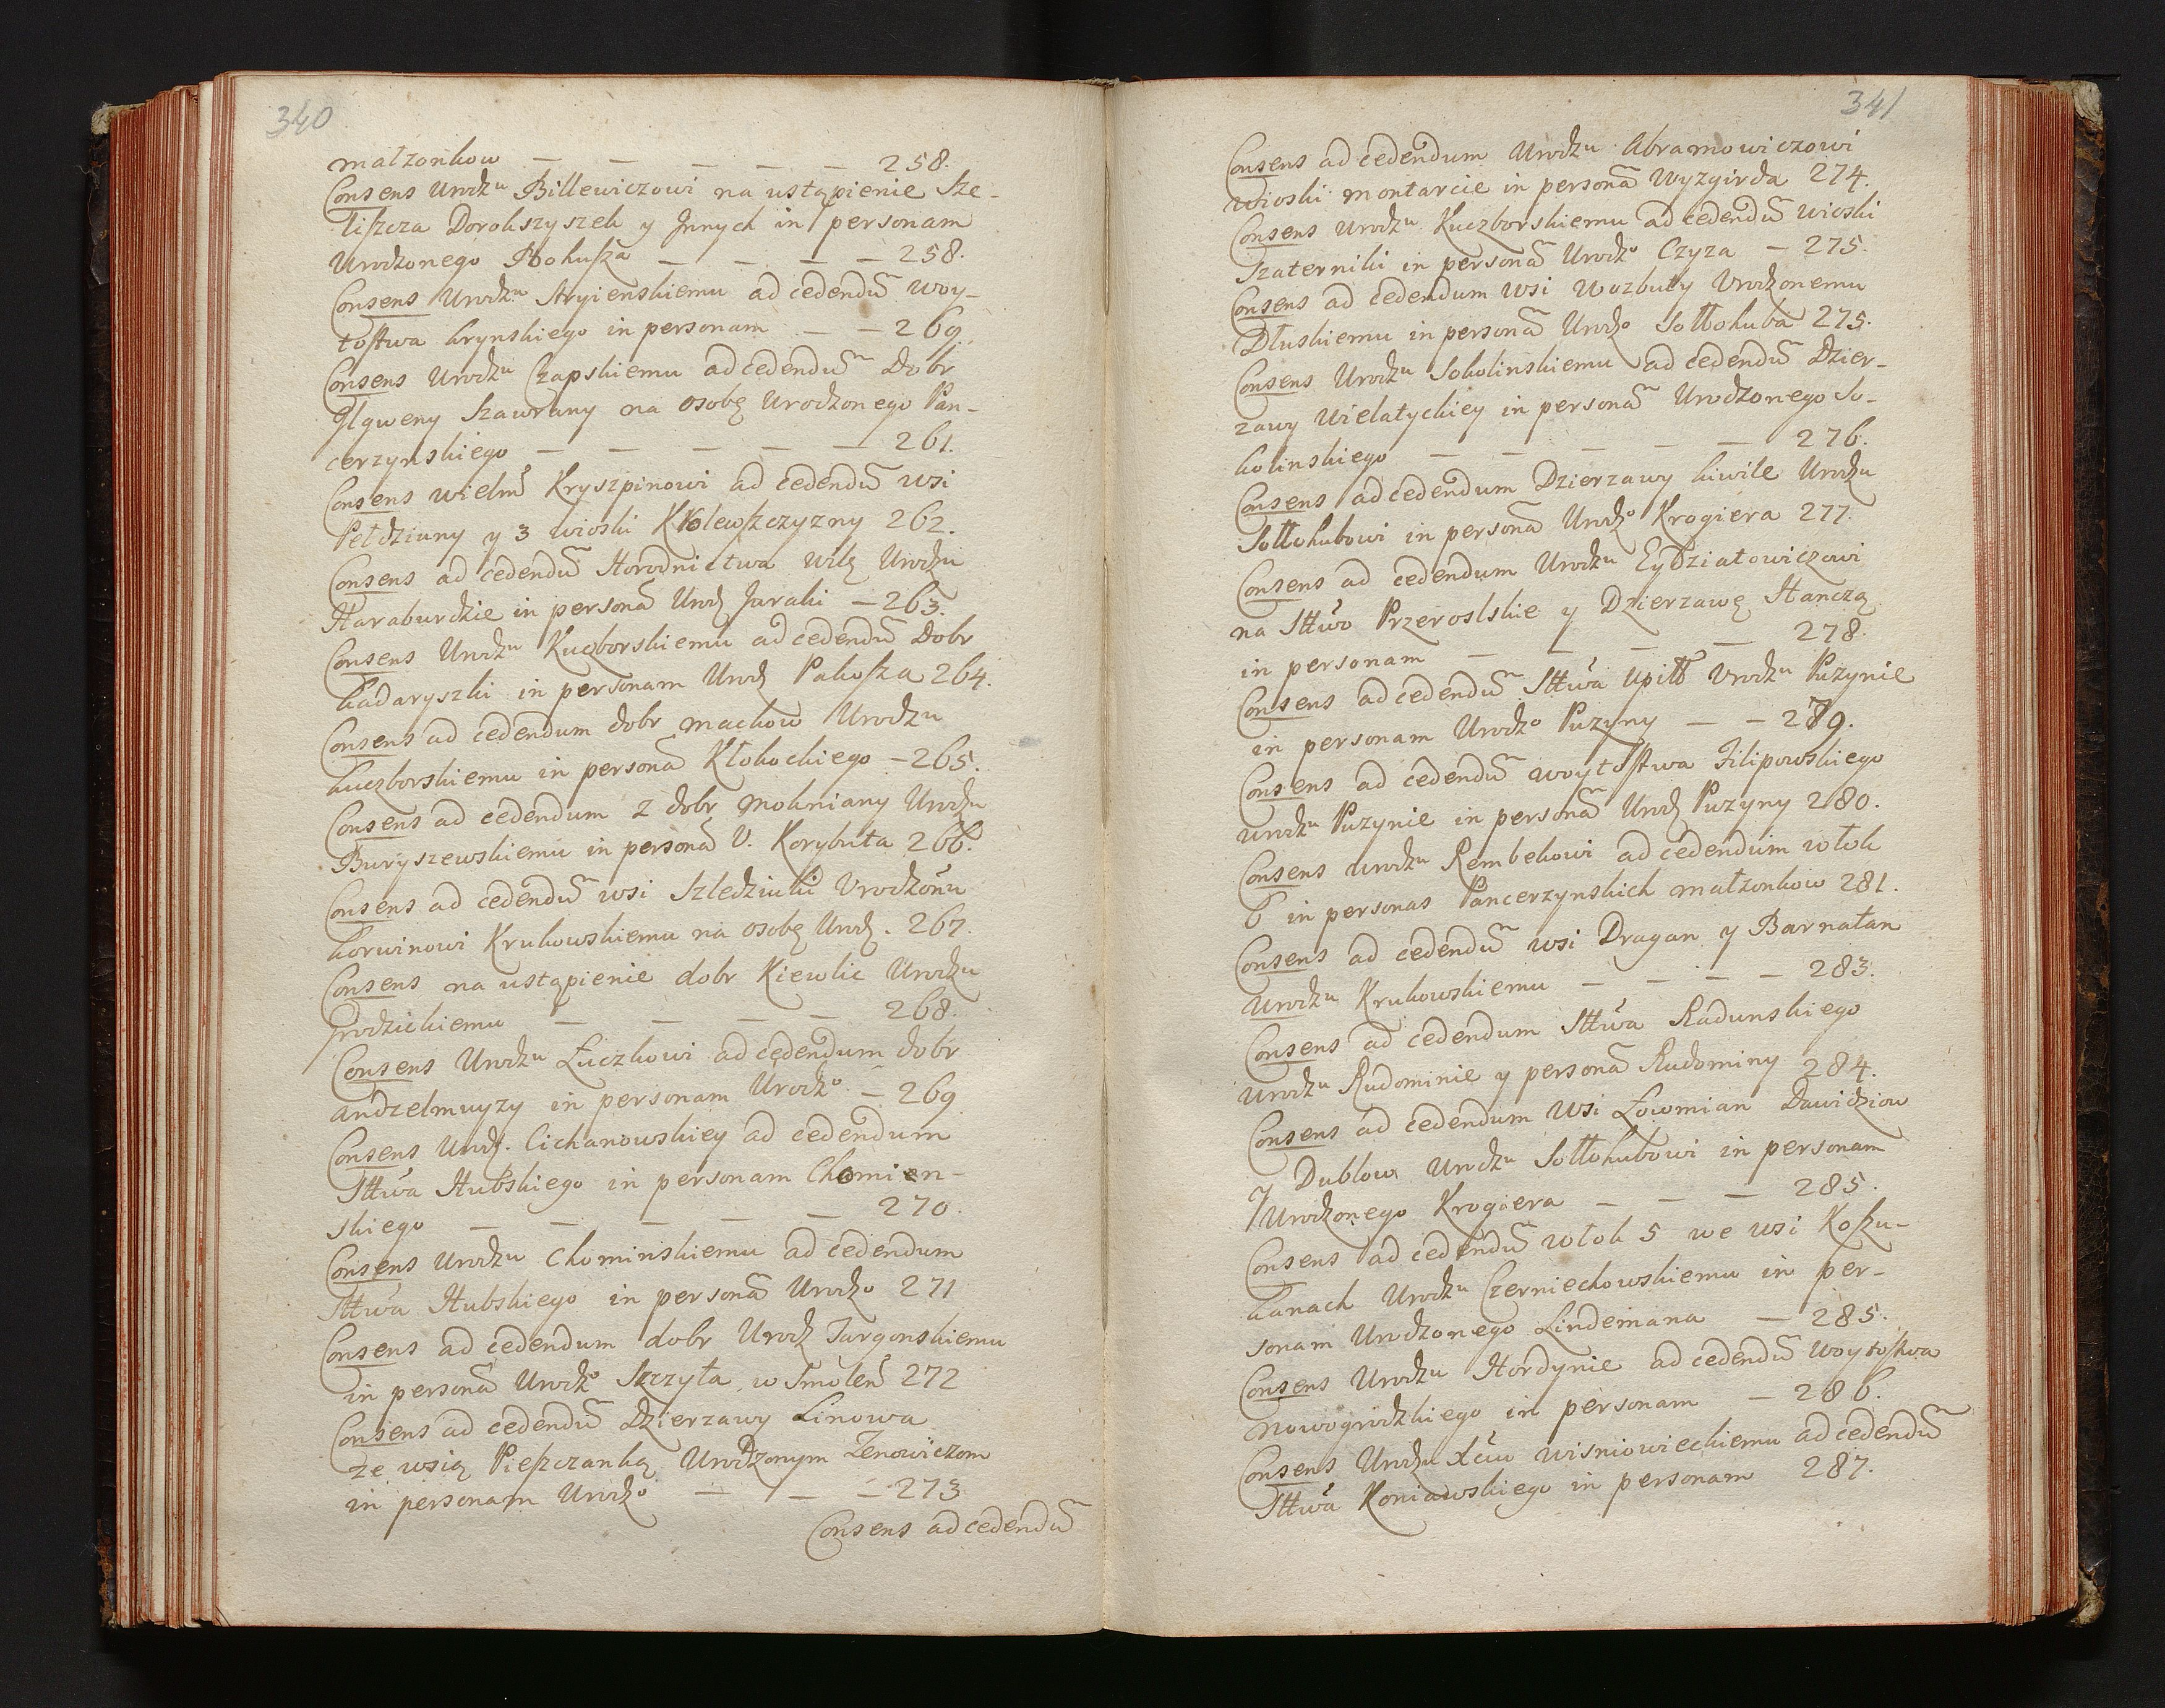 340
małzonkow — — — — — 258.
Consens Urodzu Billewiczowi na ustąpienie Sze-
liszcza Dorohszyszek y Jnnych in personam
Urodzonego Bohusza — — — — 258.
Consens Urodzu Stryienskiemu ad cedendu woy-
tostwa krynskiego in personam — — 269.
Consens Urodzu Czapskiemu ad cedendu Dobr
Jlgweny Szawrany na osobę Urodzonego Pan-
cerzynskiego — — — — — 261.
Consens wielm Kryszpinowi ad cedendu wsi
Pełdziuny y 3 wioski Krolewszczyzny 262.
Consens ad cedendu Horodnictwa Wilę Urodzu
Haraburdzie in persona Urodz Jurahi — 263.
Consens Urodzu Kuczborskiemu ad cedendu Dobr
kadaryszki in personam Urodz Pakosza 264.
Consens ad cedendum dobr machow Urodzu
kuczborskiemu in persona Kłokockiego — 265.
Consens ad cedendum 2 dobr Mohniany Urodzu
Buryszewskiemu in persona V. Korybuta 266.
Consens ad cedendu wsi Szledziuki Vrodzonu
korwinowi Krukowskiemu na osobę Urodz. 267.
Consens na ustąpienie dobr Kiewlic Urodzu
Grodzickiemu — — — — 268.
Consens Urodzu Łuczkowi ad cedendum dobr
andzelmuyzy in personam Urodzo — 269
Consens Urodz. Cichanowskiey ad cedendum
Sttwa Hubskiego in personam Chomien-
skiego — — — — — 270.
Consens Urodzu Chominskiemu ad cedendum
Sttwa Hubskiego in persona Urodzo 271
Consens ad cedendum dobr Urodz Turgonskiemu
in persona Urodzo Szczyta w Smolen 272
Consens ad cedendu Dzierzawy Linowa
ze wsią Pieszczanką Urodzonym Zenowiczom
in personam Urodzo — — — 273
Consens ad cedendu
341
Consens ad cedendum Urodzu Abramowiczowi
wioski montarcie in persona Wyzgirda 274.
Consens Urodzu Kuczborskiemu ad cedendu wioski
Szaterniki in persona Urodzo Czyza — 275.
Consens ad cedendum wsi Wozbuty Vrodzonemu
Dłuskiemu in persona Urodzo Sołłohuba 275.
Consens Urodzu Sokolinskiemu ad cedendu Dzier-
zawy Wielatyckiey in persona Urodzonego So-
kolinskiego — — — — — 276.
Consens ad cedendum Dzierzawy kiwile Urodzu
Sołłohubowi in persona Urodzo Krogiera 277.
Consens ad cedendum Urodzu Eydziatowiczowi
na Sttwo Przeroslskie y Dzierzawę Hanczą
in personam — — — — 278.
Consens ad cedendu Sttwa Upitt Vrodzu Puzynie
in personam Urodzo Puzyny — — 279.
Consens ad cedendu woytostwa Filipowskiego
urodzu Puzynie in persona Urodz Puzyny 280.
Consens urodzu Rembekowi ad cedendum włok
6 in personas Pancerzynskich małzonkow 281.
Consens ad cedendu wsi Dragan y Barnatan
Urodzu Krukowskiemu — — — — 283.
Consens ad cedendum Sttwa Radunskiego
Urodzu Rudominie y persona Rudominy 284.
Consens ad cedendum Wsi Łowmian Dawidziow
y Dublow Urodzu Sołłohubowi in personam
Urodzonego Krogiera — — — 285.
Consens ad cedendu włok 5 we wsi Koszu-
kanach Urodzu Czerniechowskiemu in per-
sonam Urodzonego Lindemana — 285.
Consens Urodzu Hordynie ad cedendu woytostwa
nowogrodzkiego in personam — 286.
Consens Urodzu Xciu Wisniowieckiemu ad cedendu
Sttwa Koniawskiego in personam 287.